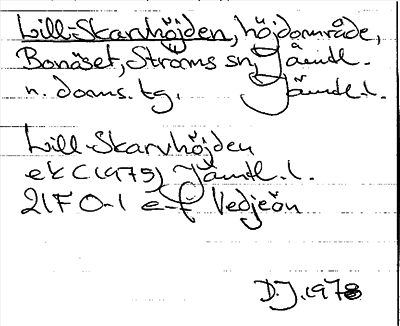 Lill-Skarvhöjden, höjdområde,
Bonäset, Ströms sn, Jämtl.
n. doms. tg. Jämtl. l.
Lill-Skarvhöjden
ek C (1975) Jämtl. l.
21F 0-1 e-f Vedjeön
D.J. 1978